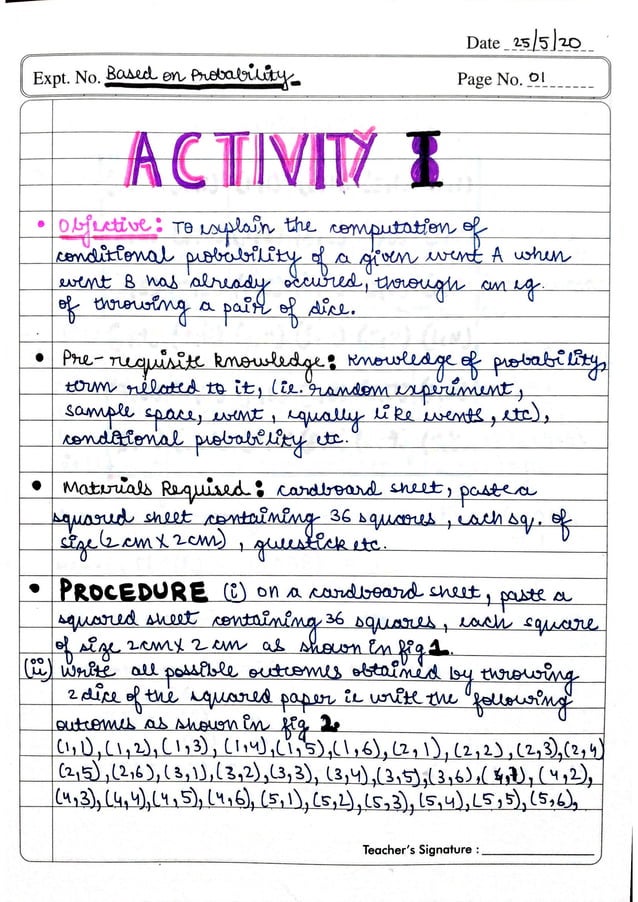 Date 25/5/20
Expt. No. Based on Probability
Page No. 01
ACTIVITY I
• Objective: To explain the computation of
conditional probability of a given event A when
event B has already occured, through an eg.
of throwing a pair of dice.
• Pre-requisite knowledge: Knowledge of probability,
term related to it, (ie. random experiment,
sample space, event, equally like events, etc),
conditional probability etc.
• Materials Required: cardboard sheet, paste a
squared sheet containing 36 squares, each sq. of
size (2 cm X 2 cm), gluestick etc.
• PROCEDURE (i) on a cardboard sheet, paste a
squared sheet containing 36 squares, each square
of size 2cm X 2 cm as shown in fig 1.
(ii) Write all possible outcomes obtained by throwing
2 dice of the squared paper ie write the following
outcomes as shown in fig 2.
(1,1), (1,2), (1,3), (1,4), (1,5), (1,6), (2,1), (2,2), (2,3), (2,4)
(2,5), (2,6), (3,1), (3,2), (3,3), (3,4), (3,5), (3,6), (4,1), (4,2),
(4,3), (4,4), (4,5), (4,6), (5,1), (5,2), (5,3), (5,4), (5,5), (5,6),
Teacher's Signature :